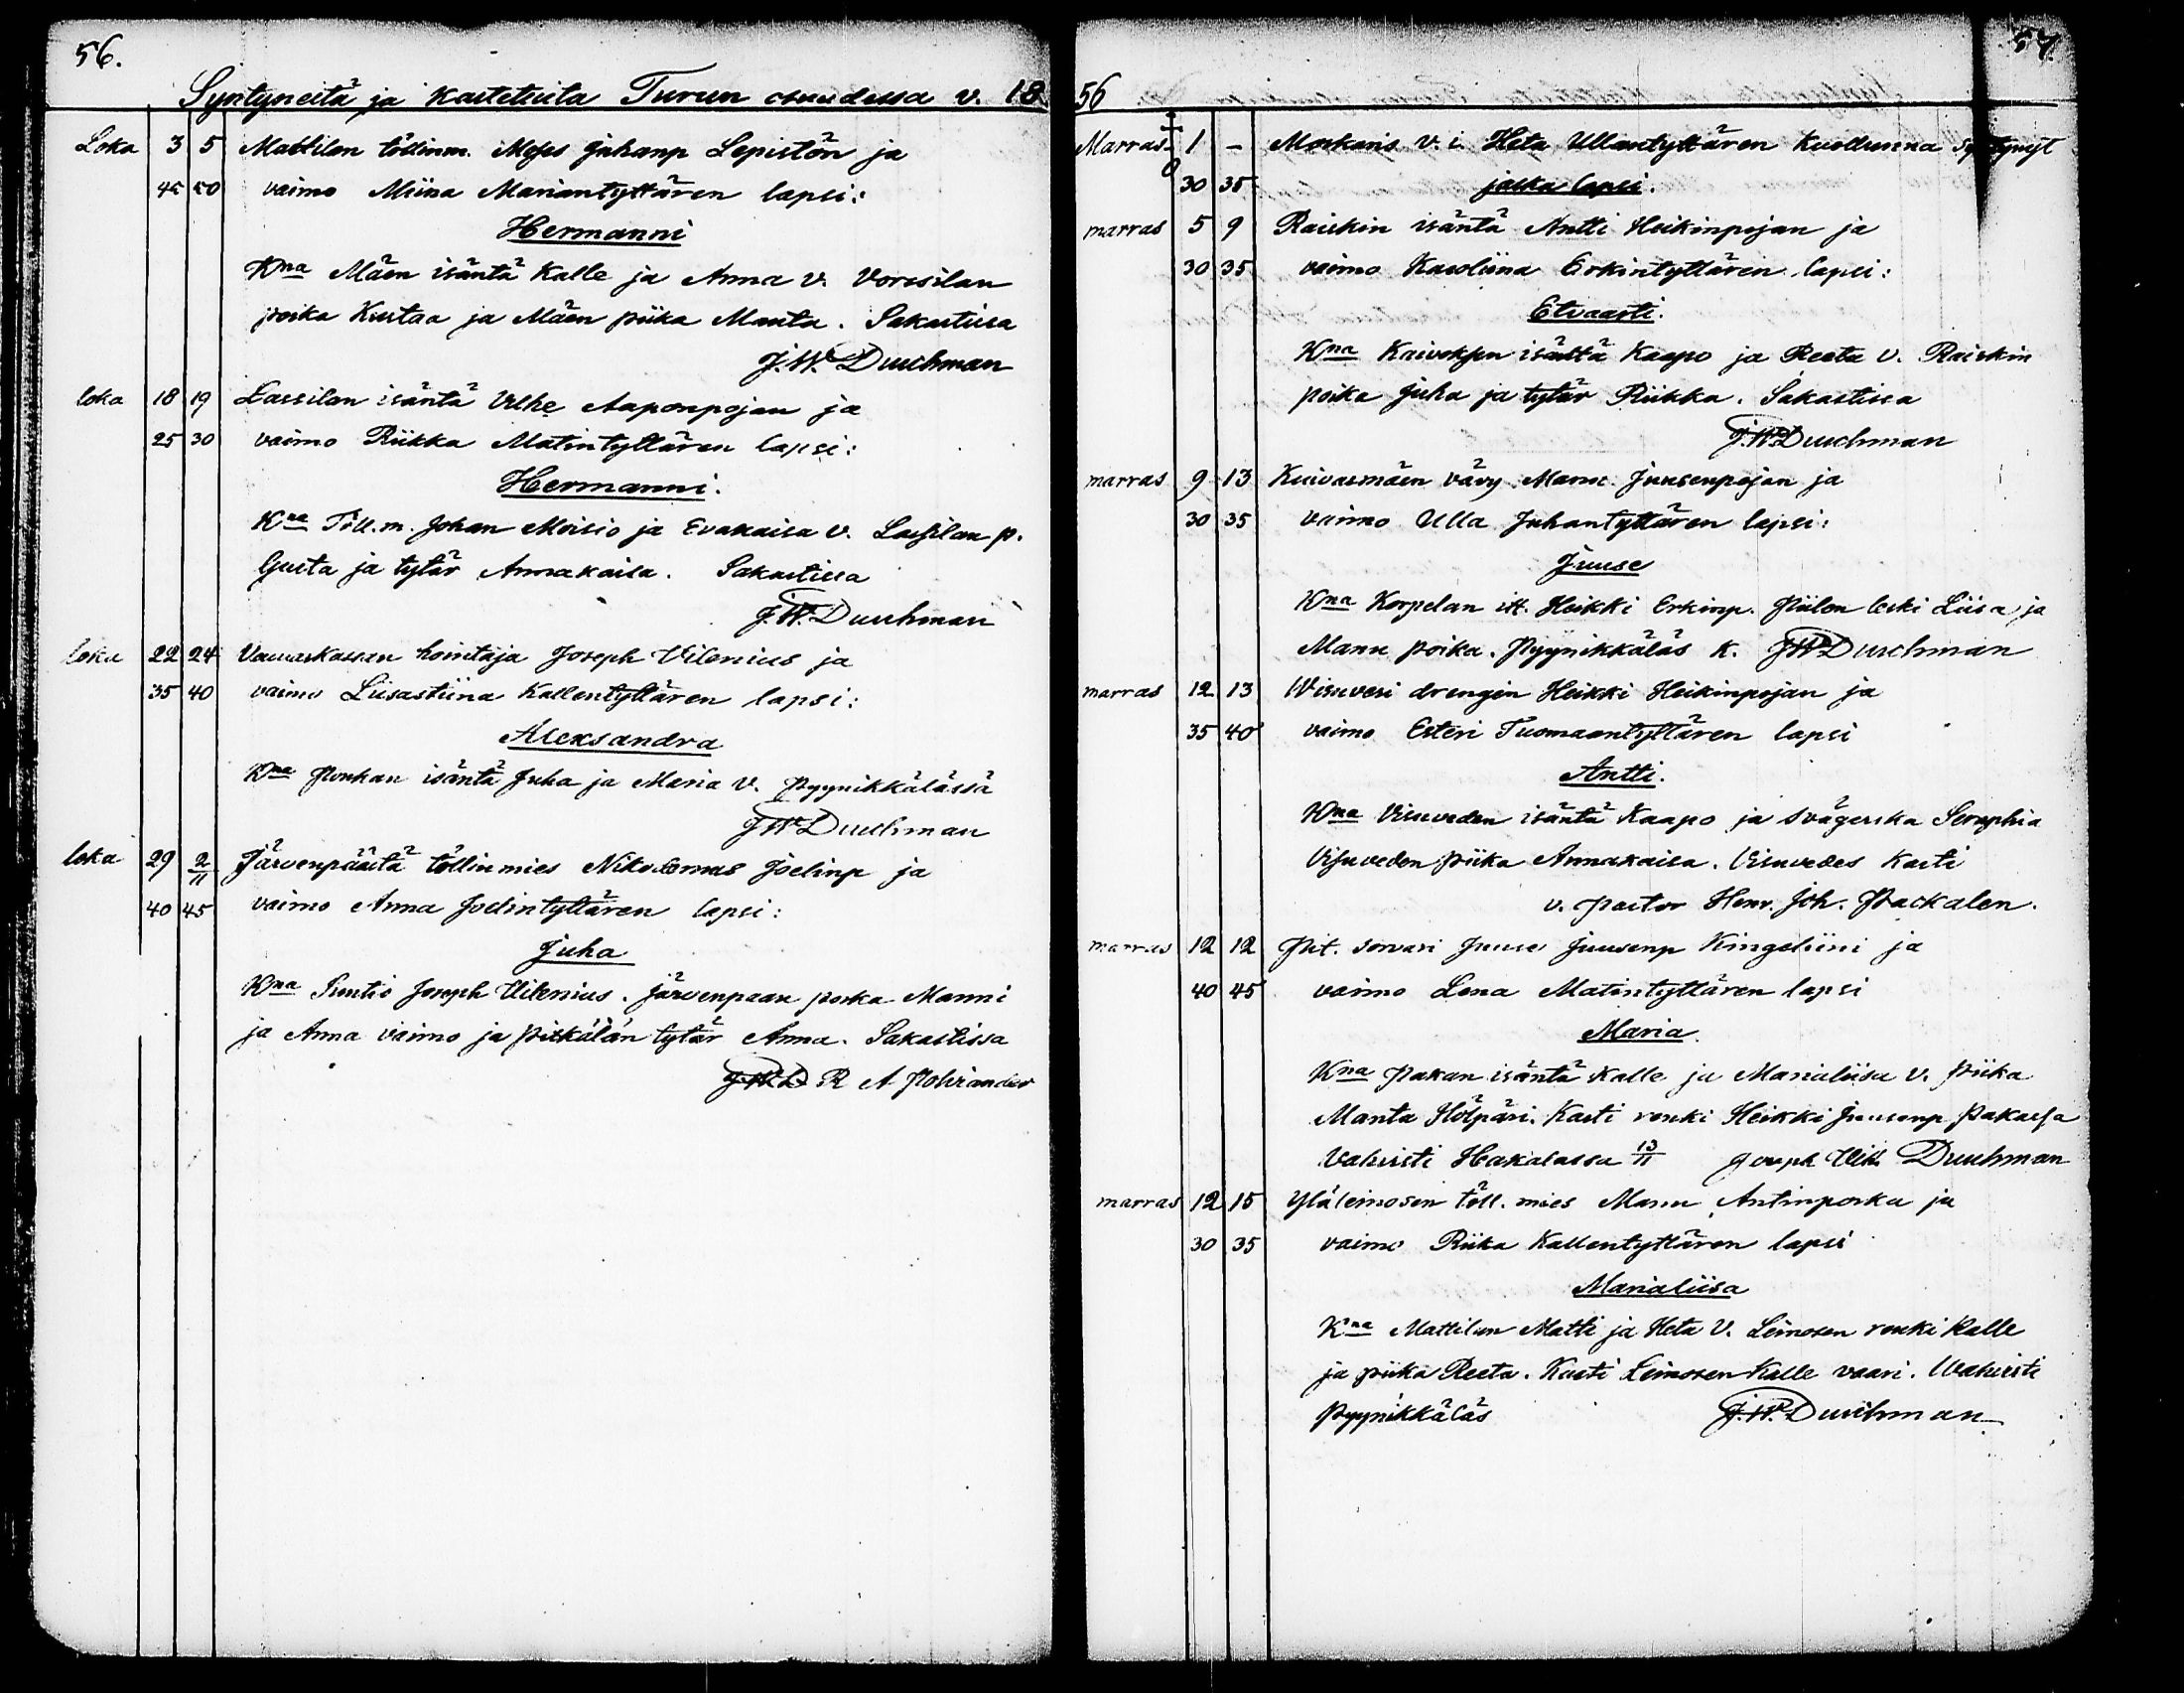 56.
Syntyneitä ja kastetuita Turun osuudessa v. 18
Loka 3 5 Mattilan töllinm. Moses Juhanp Lepistön ja
45 50 vaimo Miina Mariantyttären lapsi:
Hermanni
Kna Mäen isäntä Kalle ja Anna v. Voresilan
poika Kustaa ja Mäen piika Manta. Sakastissa
J.W. Duuhman
loka 18 19 Lassilan isäntä Vilhe Aaponpojan ja
25 30 vaimo Riikka Matintyttären lapsi:
Hermanni.
Kna Töll.m. Johan Moisio ja Evakaisa v. Lassilan p.
Gusta ja tytär Annakaisa. Sakastissa
J.W. Duuhman
loka 22 24 hointaja Joseph Vilenius ja
35 40 vaimo Liisastiina Kallentyttären lapsi:
Aleksandra
Kna isäntä Juha ja Maria v. Pyynikkälässä
JW Duuhman
loka 29 2/11 Järvenpäästä töllinmies Nikodemus Joelinp ja
40 45 vaimo Anna Joelintyttären lapsi:
Juha
Kna Suntio Joseph Vilenius. Järvenpään poika Manni
ja Anna vaimo ja Pitkälän tytär Anna. Sakastissa
J.W.D R A Polviander
57.
56
Marras 1 - v. i. Heta Ullantyttären Kuolluena syntynyt
30 35 jalka lapsi.
marras 5 9 Raiskin isäntä Antti Heikinpojan ja
30 35 vaimo Karoliina Erkintyttären lapsi:
Etvaarti.
Kna Kaivoksen isäntä Kaapo ja Reeta v. Raiskin
poika Juha ja tytär Riikka. Sakastissa
J.W. Duuhman
marras 9 13 Kuivasmäen vävy Manu Juusenpojan ja
30 35 vaimo Ulla Juhantyttären lapsi:
Juuse
Kna Korpelan itt. Heikki Erkinp. Piilon leski Liisa ja
Manu poika. Pyynikkäläs K. JW Duuhman
marras 12 13 Wisuvesi drengin Heikki Heikinpojan ja
35 40 vaimo Esteri Tuomaantyttären lapsi
Antti.
Kna Visuveden isäntä Kaapo ja svägerska Seraphia
Visuveden piika Annakaisa. Visuvedes Kasti
v. pastor Henr. Joh. Packalen.
marras 12 12 Pit. sorvari Juuse Juusenp Kingeliini ja
40 45 vaimo Lena Matintyttären lapsi
Maria.
Kna Pakan isäntä Kalle ja Marialiisa v. piika
Manta Hölpäri. Kasti renki Heikki Juusenp Pakassa
Vahvisti Hakalassa 13/11 Joseph Wilh Duuhman
marras 12 15 Yläleinosen töll. mies Manu Antinpoika ja
30 35 vaimo Riika Kallentyttären lapsi
Marialiisa
Kna Mattilan Matti ja Heta v. Leinosen renki Kalle
ja piika Reeta. Kasti Leinosen Kalle vaari. Wahvisti
Pyynikkäläs J.W. Duuhman